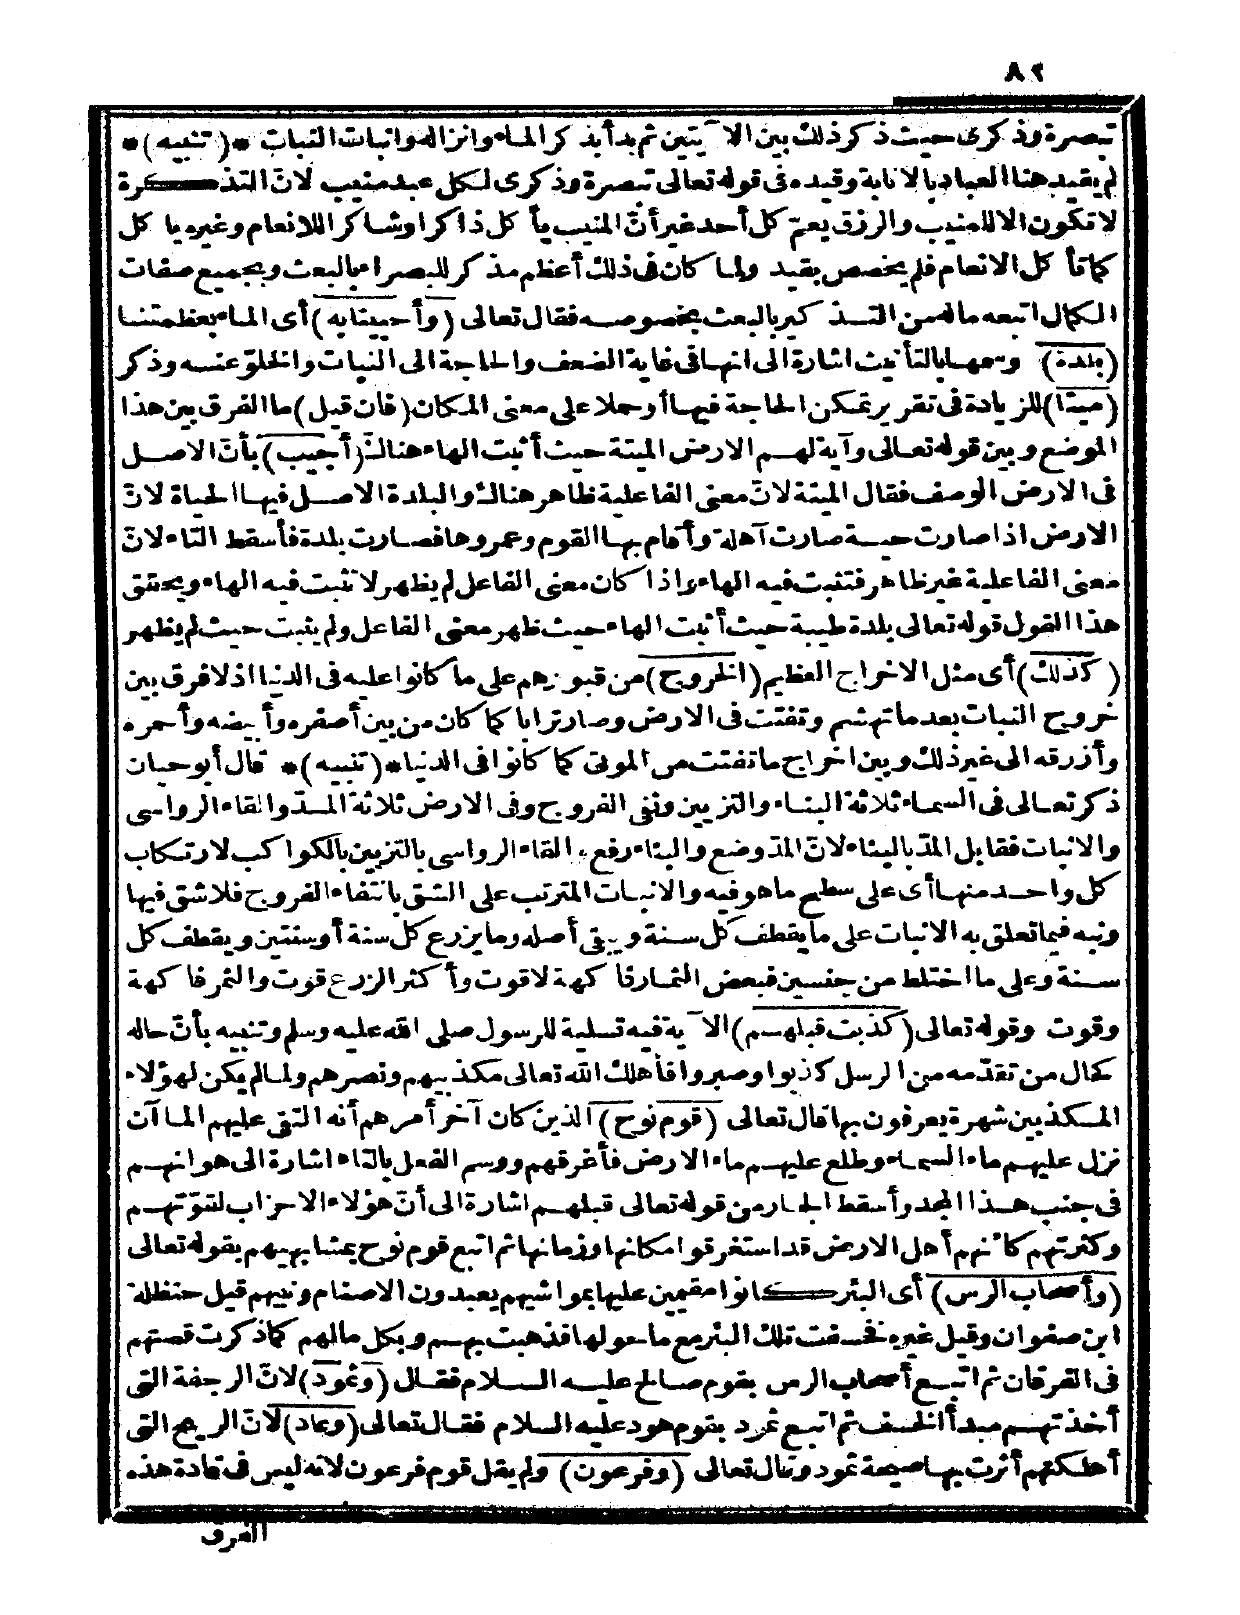 ٨٢
تبصرة وذكرى حيث ذكر ذلك بين الآيتين ثم بدأ بذكر الماء وانزاله وانبات النبات *(تنبيه)*
لم يقيد هنا العباد بالانابة وقيده فى قوله تعالى تبصرة وذكرى لكل عبد منيب لانّ التذكرة
لا تكون الا للمنيب والرزق يعمّ كل أحد غير أنّ المنيب يأكل ذاكرا وشاكرا للانعام وغيره ياكل
كما تأكل الانعام فلم يخصص بقيد ولما كان فى ذلك أعظم مذكر للبصراء بالبعث وبجميع صفات
الكمال اتبعه ماله من التذكير بالبعث بخصوصه فقال تعالى (وأحيينا به) أى الماء بعظمتنا
(بلدة) وسمها بالتأنيث اشارة الى انها فى غاية الضعف والحاجة الى النبات والخلوّ عنه وذكر
(ميتا) للزيادة فى تقرير تمكن الحاجة فيها أو حملا على معنى المكان (فان قيل) ما الفرق بين هذا
الموضع وبين قوله تعالى وآية لهم الارض الميتة حيث أثبت الهاء هناك (أجيب) بأنّ الاصل
فى الارض الوصف فقال الميتة لانّ معنى الفاعلية ظاهر هناك والبلدة الاصل فيها الحياة لانّ
الارض اذا صارت حية صارت آهلة وأقام بها القوم وعمروها فصارت بلدة فأسقط التاء لانّ
معنى الفاعلية غير ظاهر فتثبت فيه الهاء واذا كان معنى الفاعل لم يظهر لا تثبت فيه الهاء ويحقق
هذا القول قوله تعالى بلدة طيبة حيث أثبت الهاء حيث ظهر معنى الفاعل ولم يثبت حيث لم يظهر
(كذلك) أى مثل الاخراج العظيم (الخروج) من قبورهم على ما كانوا عليه فى الدنيا اذ لا فرق بين
خروج النبات بعد ما تهشم وتفتت فى الارض وصار ترابا كما كان من بين أصفره وأبيضه وأحمره
وأزرقه الى غير ذلك وبين اخراج ما تفتت من الموتى كما كانوا فى الدنيا *(تنبيه)* قال أبو حيان
ذكر تعالى فى السماء ثلاثة البناء والتزيين ونفى الفروج وفى الارض ثلاثة المدّ والقاء الرواسى
والانبات فقابل المدّ بالبناء لانّ المدّ وضع والبناء رفع والقاء الرواسى بالتزيين بالكواكب لارتكاب
كل واحد منها أى على سطح ما هو فيه والانبات المترتب على الشق بانتفاء الفروج فلا شق فيها
ونبه فيما تعلق به الانبات على ما يقطف كل سنة ويبقى أصله وما يزرع كل سنة أو سنتين ويقطف كل
سنة وعلى ما اختلط من جنسين فبعض الثمار فاكهة لا قوت وأكثر الزرع قوت والثمر فاكهة
وقوت وقوله تعالى (كذبت قبلهم) الآية فيه تسلية للرسول صلى الله عليه وسلم وتنبيه بأنّ حاله
كحال من تقدّمه من الرسل كذبوا وصبروا فأهلك الله تعالى مكذبيهم ونصرهم ولما لم يكن لهؤلاء
المكذبين شهرة يعرفون بها قال تعالى (قوم نوح) الذين كان آخر أمرهم أنه التقى عليهم الما آن
نزل عليهم ماء السماء وطلع عليهم ماء الارض فأغرقهم ووسم الفعل بالتاء اشارة الى هوانهم
فى جنب هذا المجد وأسقط الجار من قوله تعالى قبلهم اشارة الى أنّ هؤلاء الاحزاب لقوّتهم
وكثرتهم كانهم أهل الارض قد استغرقوا مكانها وزمانها ثم اتبع قوم نوح بمشابهيهم بقوله تعالى
(وأصحاب الرس) أى البئر كانوا مقيمين عليها بمواشيهم يعبدون الاصنام ونبيهم قيل حنظلة
ابن صفوان وقيل غيره فخسفت تلك البئر مع ما حولها فذهبت بهم وبكل مالهم كما ذكرت قصتهم
فى الفرقان ثم اتبع أصحاب الرس بقوم صالح عليه السلام فقال (وثمود) لانّ الرجفة التى
أخذتهم مبدأ الخسف ثم اتبع ثمود بقوم هود عليه السلام فقال تعالى (وعاد) لانّ الريح التى
أهلكتهم أثرت بها صيحة ثمود وقال تعالى (وفرعون) ولم يقل قوم فرعون لانه ليس فى مادة هذه
الفرق